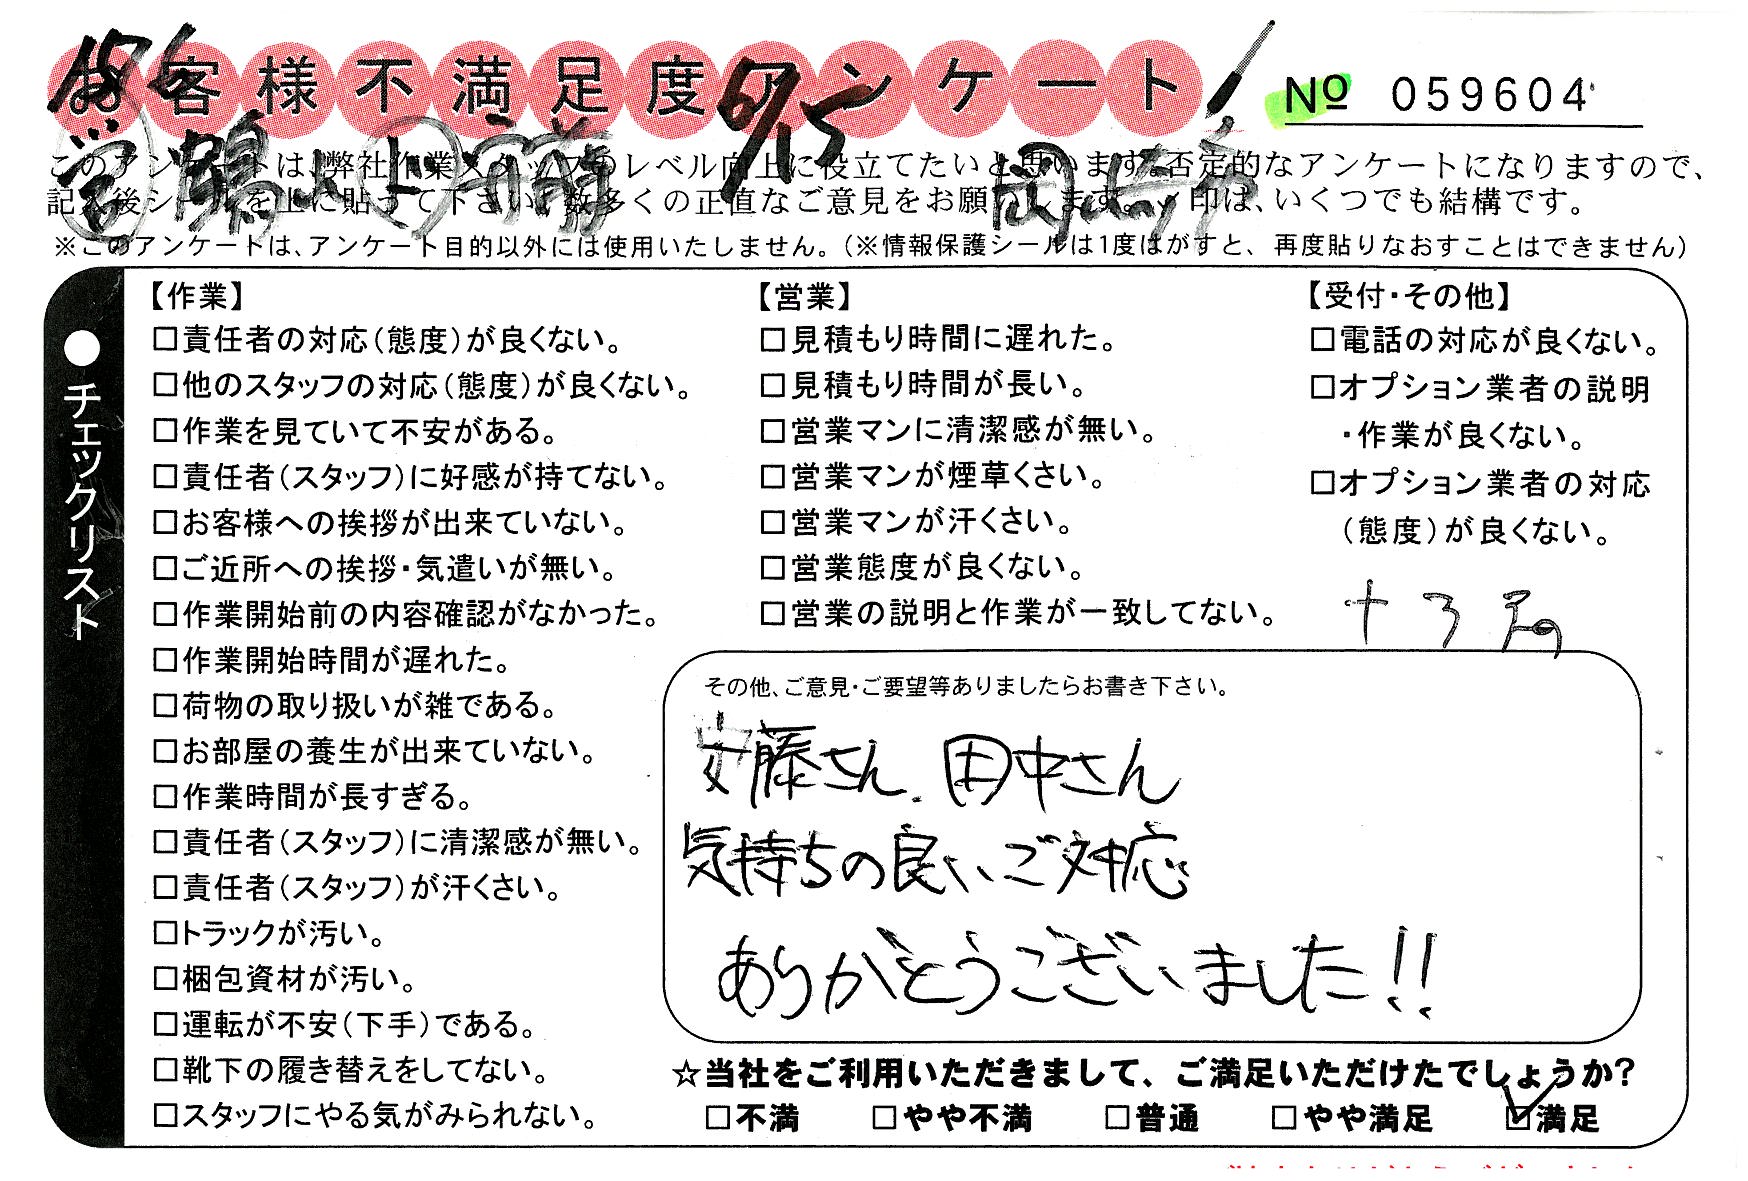 お客様不満足度アンケート
№ 059604
9/15
このアンケートは、弊社作業スタッフのレベル向上に役立てたいと思います。否定的なアンケートになりますので、
記入後シールを上に貼って下さい。数多くの正直なご意見をお願いします。✓印は、いくつでも結構です。
※このアンケートは、アンケート目的以外には使用いたしません。（※情報保護シールは1度はがすと、再度貼りなおすことはできません）
●チェックリスト
【作業】
□責任者の対応（態度）が良くない。
□他のスタッフの対応（態度）が良くない。
□作業を見ていて不安がある。
□責任者（スタッフ）に好感が持てない。
□お客様への挨拶が出来ていない。
□ご近所への挨拶・気遣いが無い。
□作業開始前の内容確認がなかった。
□作業開始時間が遅れた。
□荷物の取り扱いが雑である。
□お部屋の養生が出来ていない。
□作業時間が長すぎる。
□責任者（スタッフ）に清潔感が無い。
□責任者（スタッフ）が汗くさい。
□トラックが汚い。
□梱包資材が汚い。
□運転が不安（下手）である。
□靴下の履き替えをしてない。
□スタッフにやる気がみられない。
【営業】
□見積もり時間に遅れた。
□見積もり時間が長い。
□営業マンに清潔感が無い。
□営業マンが煙草くさい。
□営業マンが汗くさい。
□営業態度が良くない。
□営業の説明と作業が一致してない。
【受付・その他】
□電話の対応が良くない。
□オプション業者の説明
・作業が良くない。
□オプション業者の対応
（態度）が良くない。
その他、ご意見・ご要望等ありましたらお書き下さい。
安藤さん、田中さん
気持ちの良いご対応
ありがとうございました!!
☆当社をご利用いただきまして、ご満足いただけたでしょうか？
□不満 □やや不満 □普通 □やや満足 ☑満足